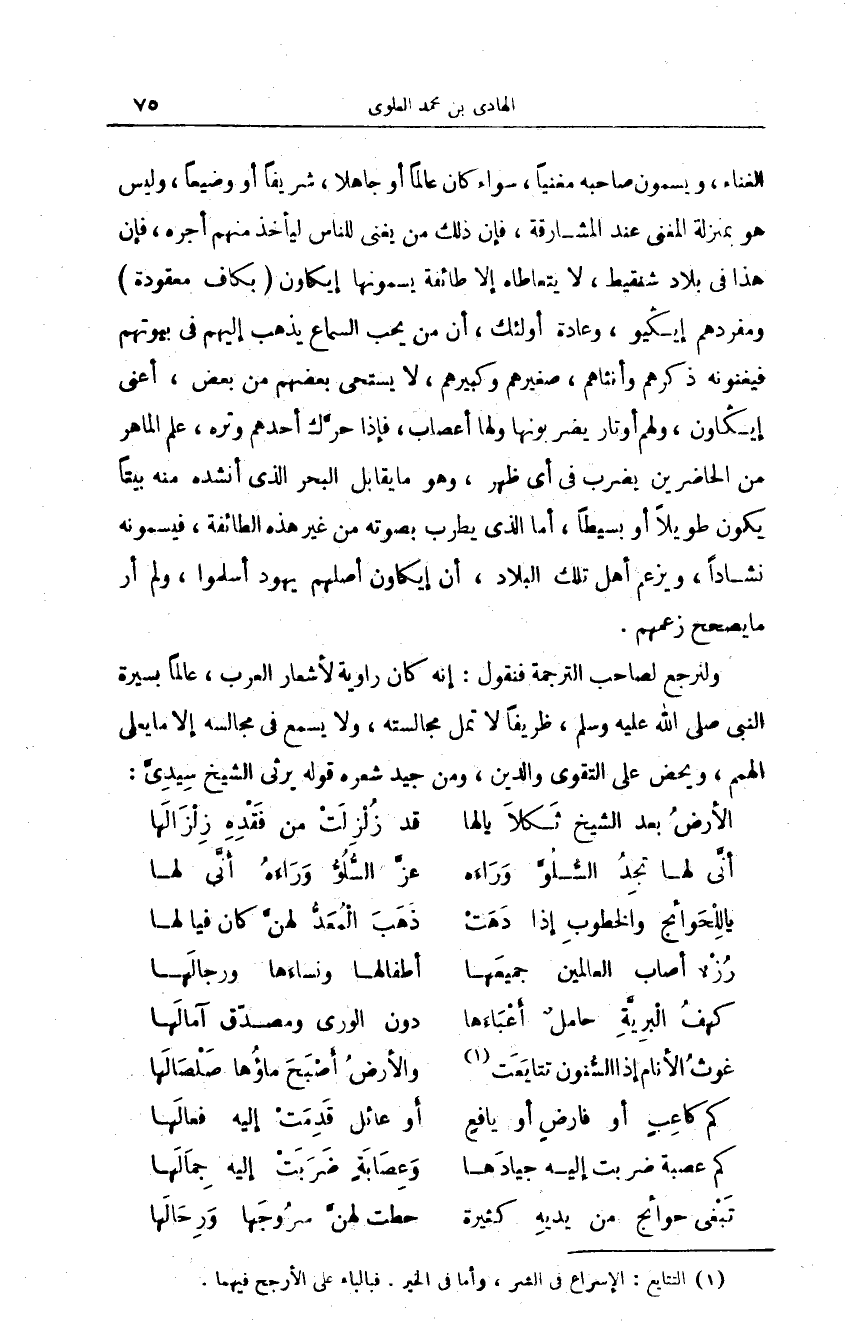 الهادى بن محمد العلوى ٧٥
الغناء ، ويسمون صاحبه مغنياً ، سواء كان عالماً أو جاهلا ، شريفاً أو وضيعاً ، وليس
هو بمنزلة المغنى عند المشارقة ، فإن ذلك من يغنى للناس ليأخذ منهم أجره ، فإن
هذا فى بلاد شنقيط ، لا يتعاطاه إلا طائفة يسمونها إيكاون ( بكاف معقودة )
ومفردهم إيكيو ، وعادة أولئك ، أن من يحب السماع يذهب إليهم فى بيوتهم
فيغنونه ذكرهم وأنثاهم ، صغيرهم وكبيرهم ، لا يستحى بعضهم من بعض ، أعنى
إيكاون ، ولهم أوتار يضربونها ولها أعصاب ، فإذا حرَّك أحدهم وتره ، علم الماهر
من الحاضرين يضرب فى أى ظهر ، وهو مايقابل البحر الذى أنشده منه بيتاً
يكون طويلاً أو بسيطاً ، أما الذى يطرب بصوته من غير هذه الطائفة ، فيسمونه
نشاداً ، ويزعم أهل تلك البلاد ، أن إيكاون أصلهم يهود أسلموا ، ولم أر
مايصحح زعمهم .
ولنرجع لصاحب الترجمة فنقول : إنه كان راوية لأشعار العرب ، عالماً بسيرة
النبى صلى الله عليه وسلم ، ظريفاً لا تمل مجالسته ، ولا يسمع فى مجالسه إلا مايعلى
الهمم ، ويحض على التقوى والدين ، ومن جيد شعره قوله يرثى الشيخ سِيدِىَّ :
الأرضُ بعد الشيخ ثَكلاَ يالها قد زُلْزِلَتْ من فَقْدِهِ زِلْزَالَها
أنَّى لها تجِدُ السُّلُوَّ وَرَاءه عزَّ السُّلُوُّ وَرَاءهُ أنَّى لها
ياللِحَوائج والخطوبِ إذا دَهَتْ ذَهَبَ الْمُعَدُّ لهنَّ كان فيا لها
رُزْءٌ أصاب العالمين جميعَها أطفالها ونساءها ورجالَها
كهفُ الْبَرِيَّةِ حاملٌ أعْبَاءَها دون الورى ومصدّق آمالَها
غوثُ الأنام إذا السُّنون تتايَعَت (١) والأرضُ أصْبَحَ ماؤُها صَلْصَالَها
كم كاعِبٍ أو فارضٍ أو يافعٍ أو عائل قَدِمَتْ إليه فعالَها
كم عصبة ضربت إليه جيادَها وَعِصَابَةٍ ضَرَبَتْ إليه جِمَالَها
تَبْغى حوائج من يديهِ كثيرة حطت لهنَّ سرُوجَها وَرِحَالَها
(١) التتايع : الإسراع فى الشر ، وأما فى الخير . فبالباء على الأرجح فيهما .